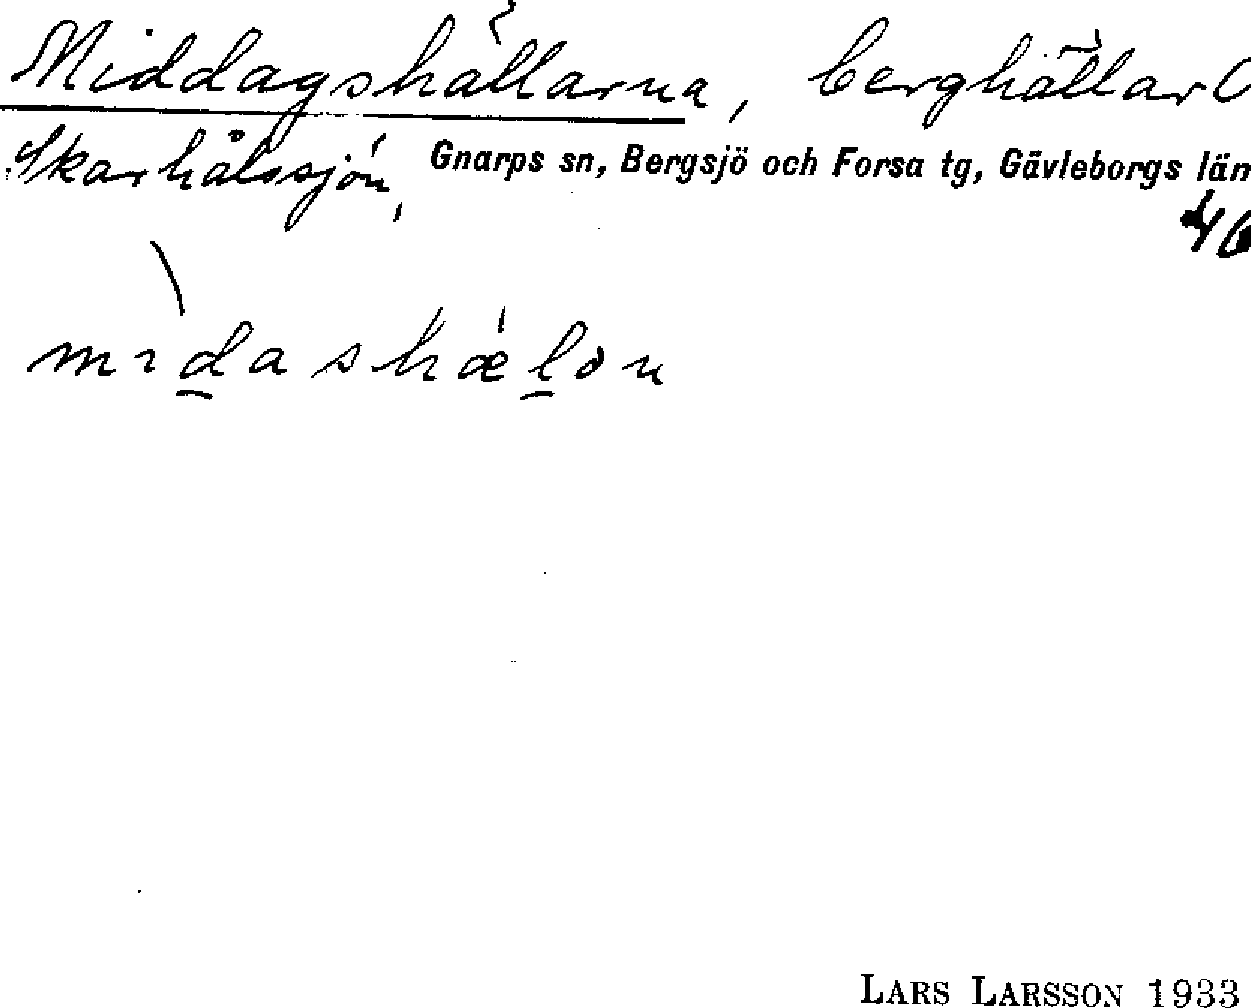 Middagshällarna, berghällar O
Skarhålssjön, Gnarps sn, Bergsjö och Forsa tg, Gävleborgs län
mıdashælon
LARS LARSSON 1933